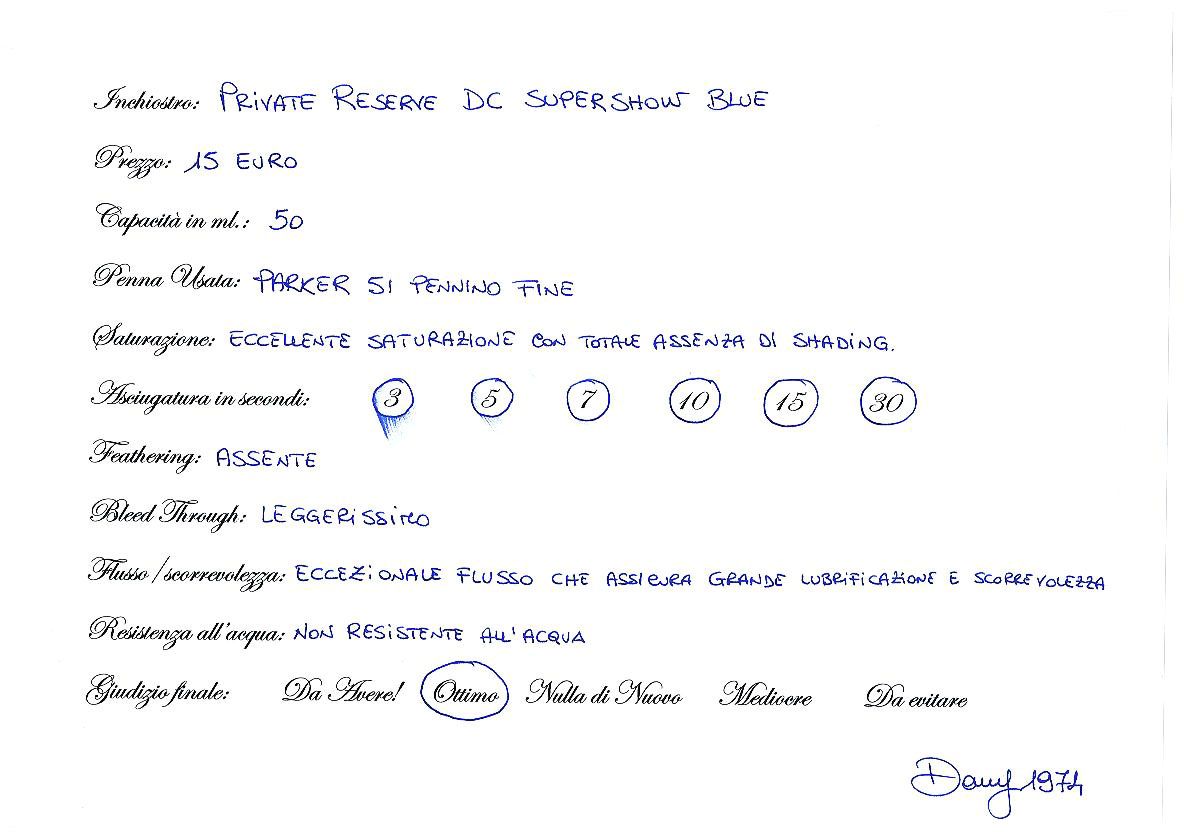 Inchiostro: PRIVATE RESERVE DC SUPERSHOW BLUE
Prezzo: 15 EURO
Capacità in ml.: 50
Penna Usata: PARKER 51 PENNINO FINE
Saturazione: ECCELLENTE SATURAZIONE CON TOTALE ASSENZA DI SHADING.
Asciugatura in secondi: 3 5 7 10 15 30
Feathering: ASSENTE
Bleed Through: LEGGERISSIMO
Flusso/scorrevolezza: ECCEZIONALE FLUSSO CHE ASSICURA GRANDE LUBRIFICAZIONE E SCORREVOLEZZA
Resistenza all'acqua: NON RESISTENTE ALL'ACQUA
Giudizio finale: Da Avere! Ottimo Nulla di Nuovo Mediocre Da evitare
Dany 1974